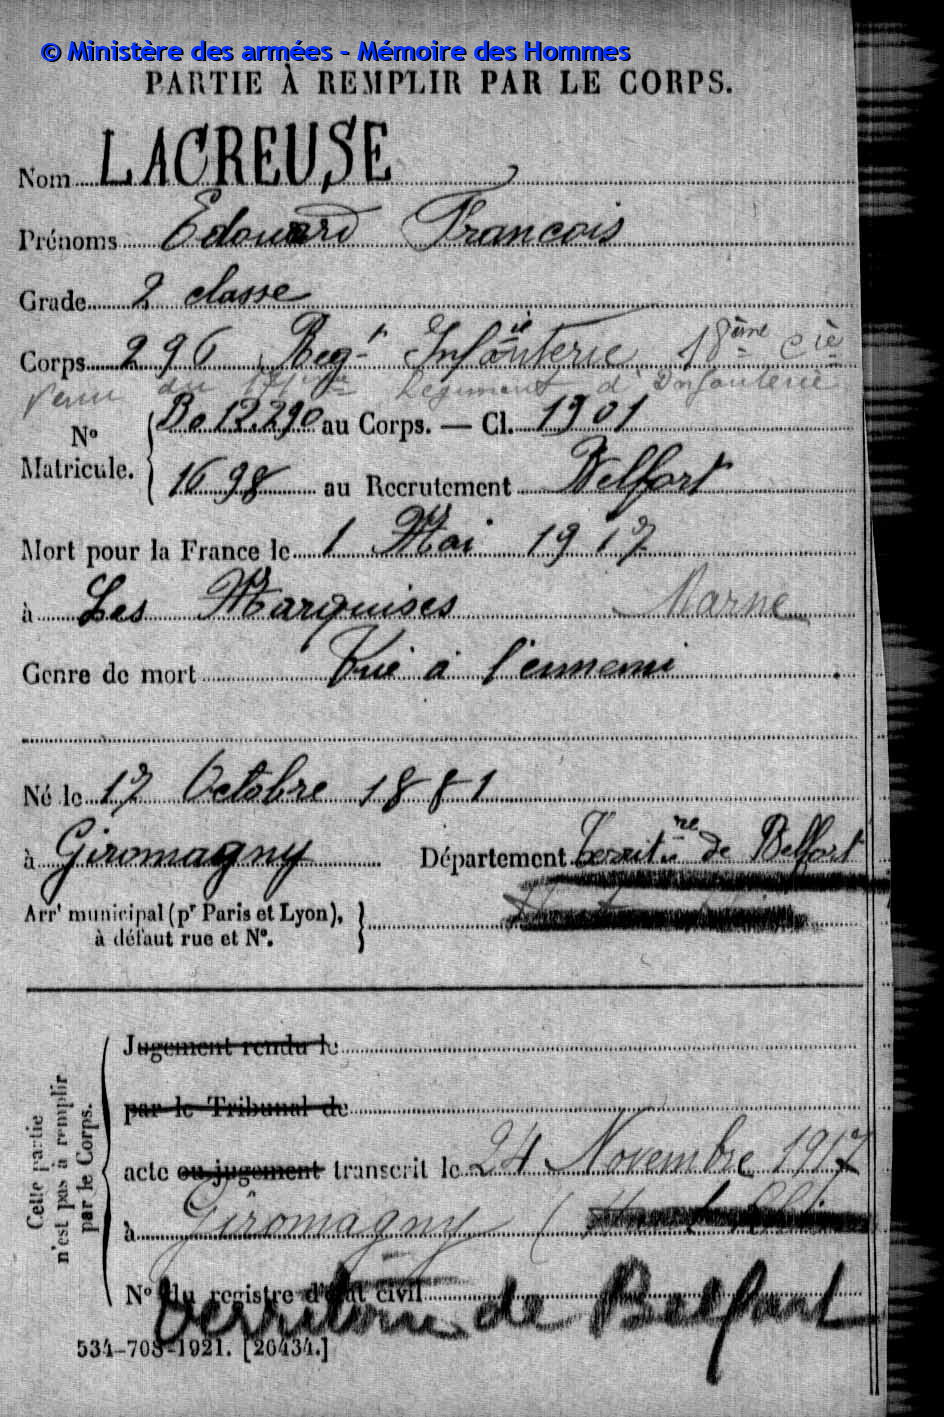 © Ministère des armées - Mémoire des Hommes
PARTIE À REMPLIR PAR LE CORPS.
Nom LACREUSE
Prénoms Edouard François
Grade 2 classe
Corps 296 Regt Infanterie 18ème Cie
Venu du Régiment d'Infanterie
N° Matricule. Bo 12.290 au Corps. — Cl. 1901
1698 au Recrutement Belfort
Mort pour la France le 1 Mai 1917
à Les Marquises Marne
Genre de mort Tué à l'ennemi
Né le 17 Octobre 1881
à Giromagny Département Territre de Belfort
Arrt municipal (pr Paris et Lyon),
à défaut rue et N°.
Cette partie
n'est pas à remplir
par le Corps.
Jugement rendu le
par le Tribunal de
acte ou jugement transcrit le 24 Novembre 1917
à Giromagny (
N° du registre d'état civil
Territoire de Belfort
534-708-1921. [26434.]